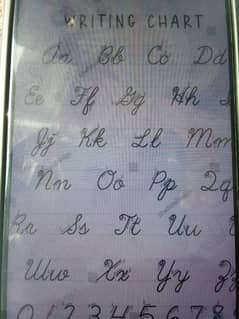 WRITING CHART
Aa Bb Cc Dd
Ee Ff Gg Hh
Jj Kk Ll Mm
Nn Oo Pp Qq
Rr Ss Tt Uu
Ww Xx Yy Zz
0 1 2 3 4 5 6 7 8